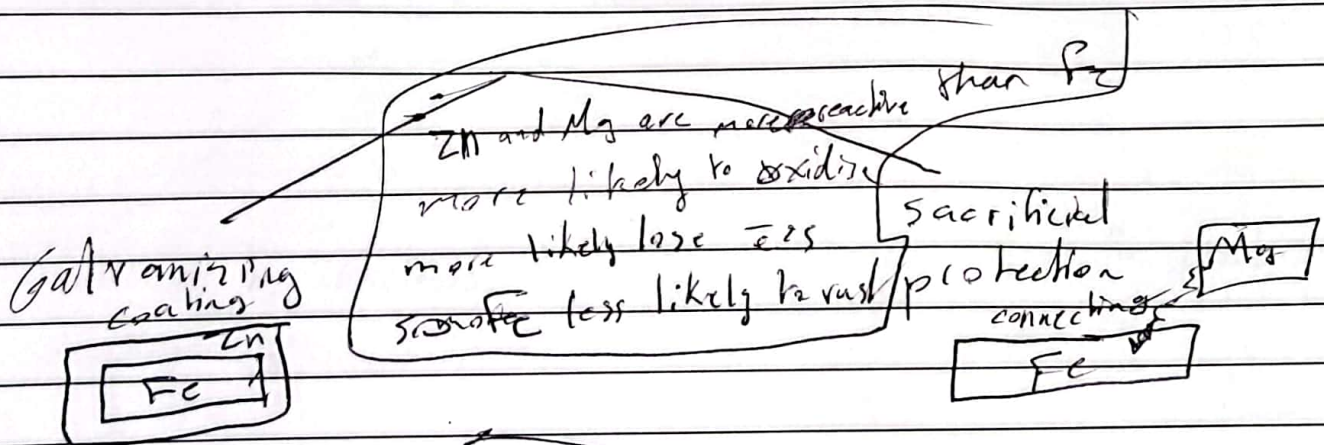 Zn and Mg are more reactive than Fe
more likely to oxidise
more likely lose e̅s
so Fe less likely to rust
Galvanizing
coating
Zn
Fe
sacrificial
protection
connecting
Mg
Fe